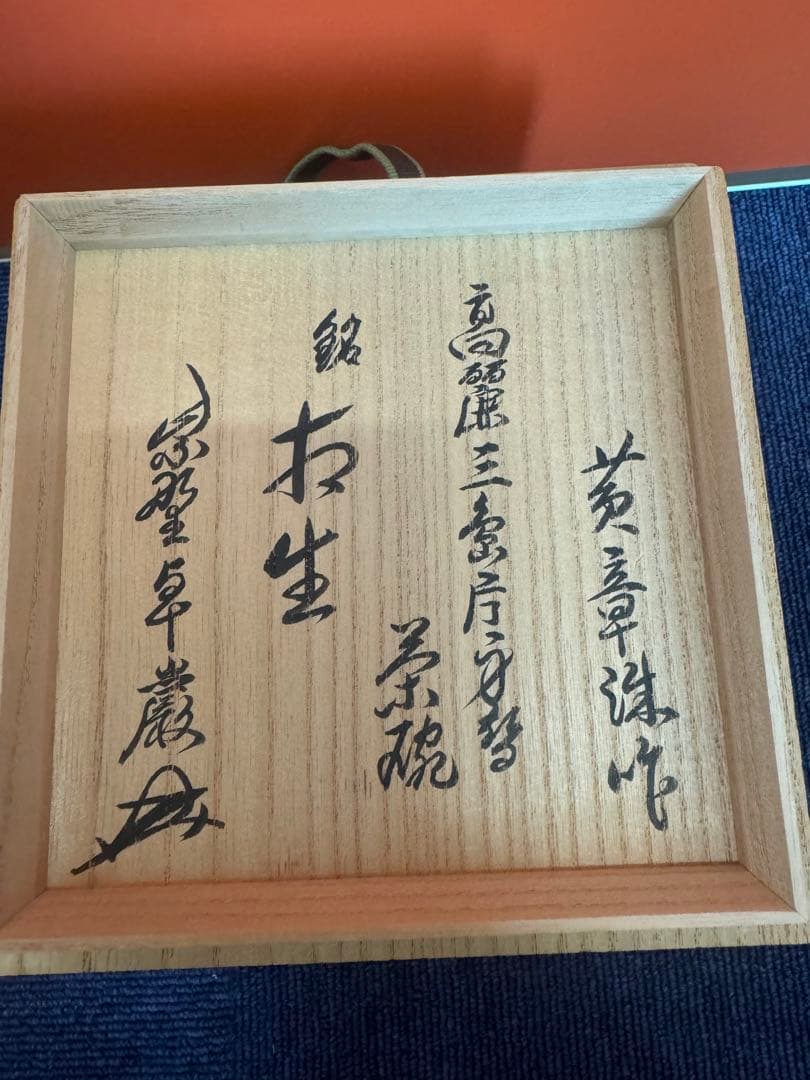 黄章洙作
高麗三島片身替
茶碗
銘
相生
紫野卓巌